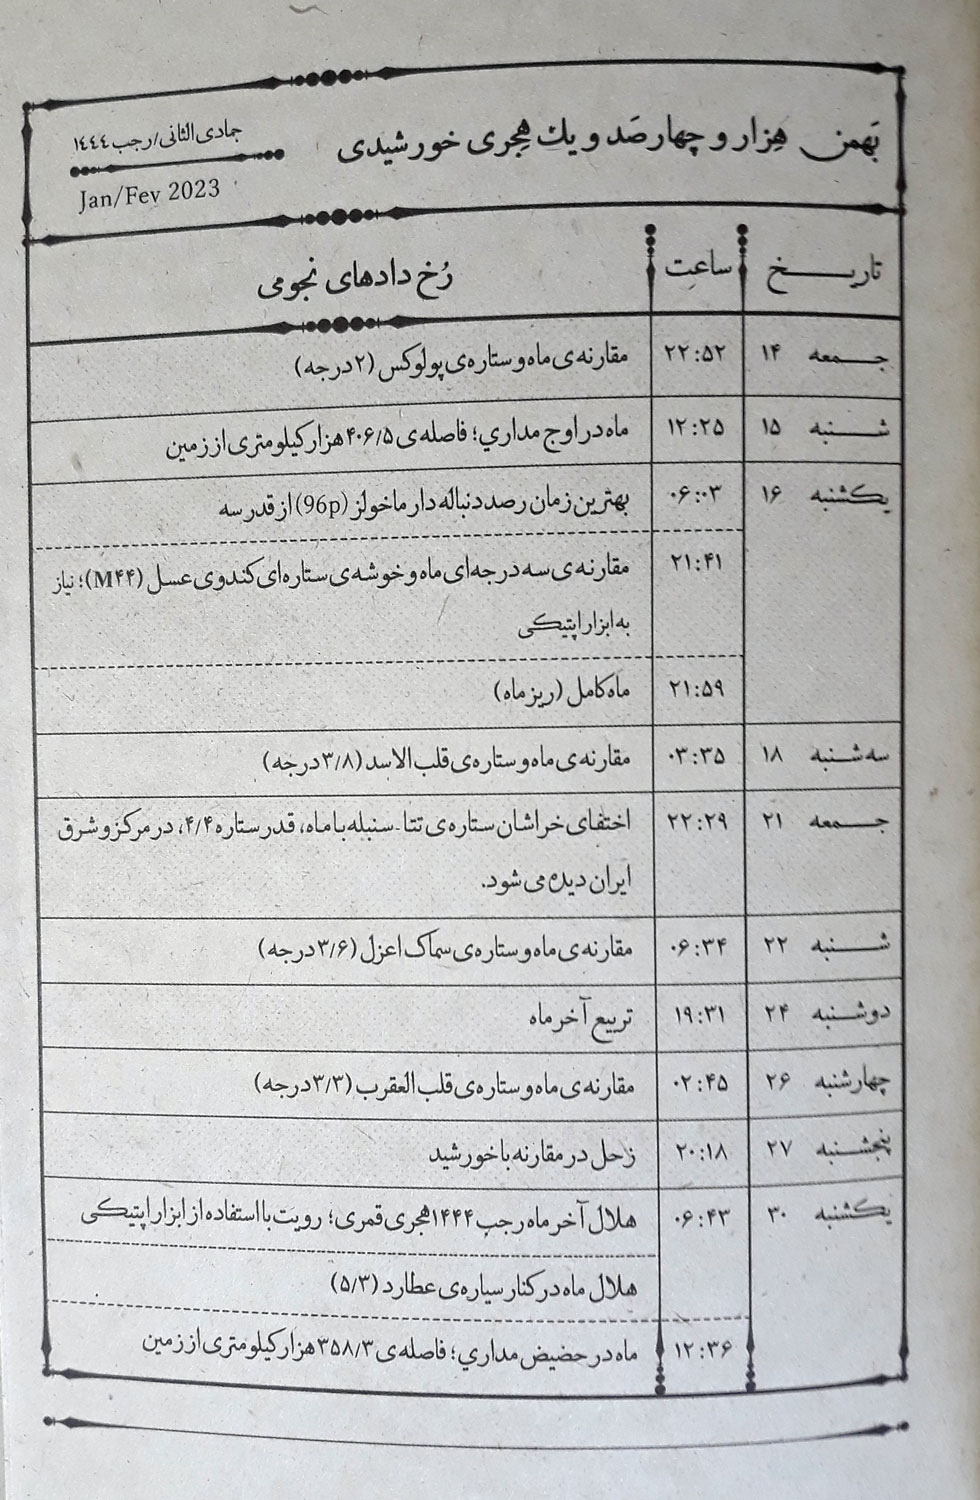 بَهمن هِزار و چهار صَد و یك هِجری خورشیدی
جمادی الثانی/رجب ۱۴۴۴
Jan/Fev 2023
تاریخ ساعت رُخ دادهای نجومی
جمعه ۱۴ ۲۲:۵۲ مقارنه‌ی ماه و ستاره‌ی پولوکس (۲ درجه)
شنبه ۱۵ ۱۲:۲۵ ماه در اوج مداري؛ فاصله‌ی ۴۰۶/۵ هزار کیلومتری از زمین
یکشنبه ۱۶ ۰۶:۰۳ بهترین زمان رصد دنباله دار ماخولز (96p) از قدر سه
۲۱:۴۱ مقارنه‌ی سه درجه‌ای ماه و خوشه‌ی ستاره‌ای کندوی عسل (M۴۴)؛ نیاز
به ابزار اپتیکی
۲۱:۵۹ ماه کامل (ریز ماه)
سه شنبه ۱۸ ۰۳:۳۵ مقارنه‌ی ماه و ستاره‌ی قلب الاسد (۳/۸ درجه)
جمعه ۲۱ ۲۲:۲۹ اختفای خراشان ستاره‌ی تتا-سنبله با ماه، قدر ستاره ۴/۴، در مرکز و شرق
ایران دیده می شود.
شنبه ۲۲ ۰۶:۳۴ مقارنه‌ی ماه و ستاره‌ی سماک اعزل (۳/۶ درجه)
دوشنبه ۲۴ ۱۹:۳۱ تربیع آخر ماه
چهارشنبه ۲۶ ۰۲:۴۵ مقارنه‌ی ماه و ستاره‌ی قلب العقرب (۳/۳ درجه)
پنجشنبه ۲۷ ۲۰:۱۸ زحل در مقارنه با خورشید
یکشنبه ۳۰ ۰۶:۴۳ هلال آخر ماه رجب ۱۴۴۴ هجری قمری؛ رویت با استفاده از ابزار اپتیکی
هلال ماه در کنار سیاره‌ی عطارد (۵/۳)
۱۲:۳۶ ماه در حضیض مداري؛ فاصله‌ی ۳۵۸/۳ هزار کیلومتری از زمین